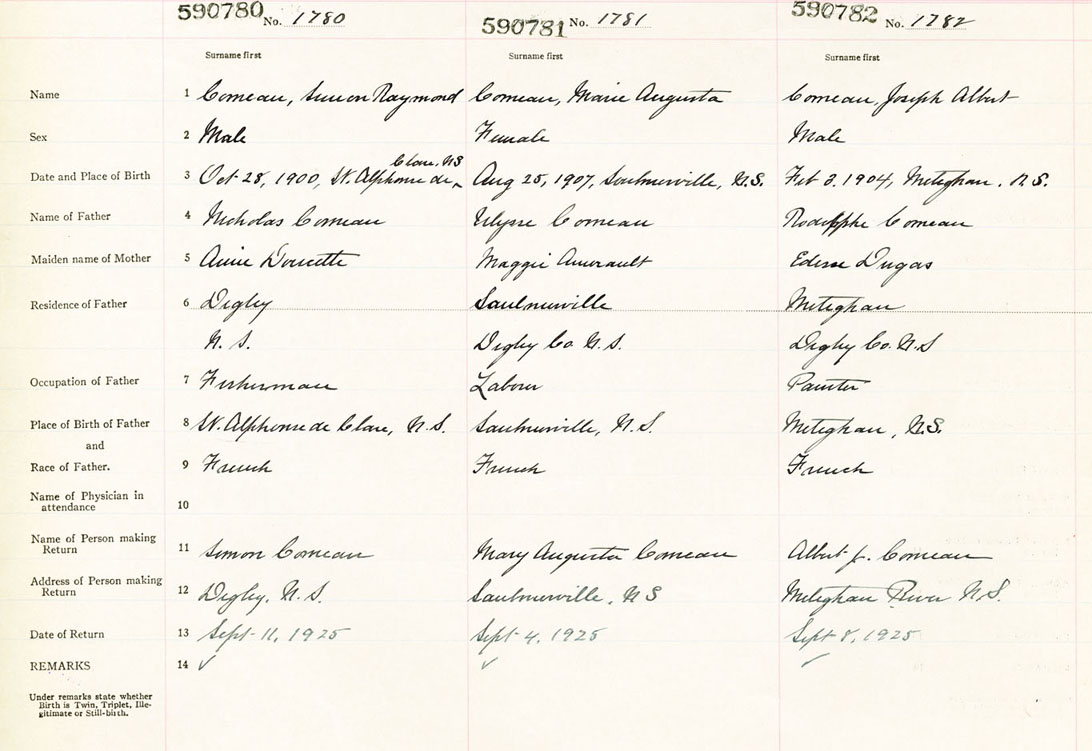 590780 No. 1780 590781 No. 1781 590782 No. 1782
Surname first Surname first Surname first
Name 1 Comeau, Simon Raymond Comeau, Marie Augusta Comeau, Joseph Albert
Sex 2 Male Female Male
Clare, N.S.
Date and Place of Birth 3 Oct 28, 1900, St. Alphonse de, Aug 25, 1907, Saulnierville, N.S. Feb 3. 1904, Meteghan, N.S.
Name of Father 4 Nicholas Comeau Ulysse Comeau Rodolphe Comeau
Maiden name of Mother 5 Annie Doucette Maggie Amirault Dugas
Residence of Father 6 Digby Saulnierville Meteghan
N. S. Digby Co N. S. Digby Co. N.S
Occupation of Father 7 Fisherman Labour Painter
Place of Birth of Father 8 St. Alphonse de Clare, N.S. Saulnierville, N.S. Meteghan, N.S.
and
Race of Father. 9 French French French
Name of Physician in
attendance 10
Name of Person making
Return 11 Simon Comeau Mary Augusta Comeau Albert J. Comeau
Address of Person making
Return 12 Digby, N.S. Saulnierville, N S Meteghan River N.S.
Date of Return 13 Sept 11, 1925 Sept 4, 1925 Sept 8, 1925
REMARKS 14 ✓ ✓ ✓
Under remarks state whether
Birth is Twin, Triplet, Ille-
gitimate or Still-birth.